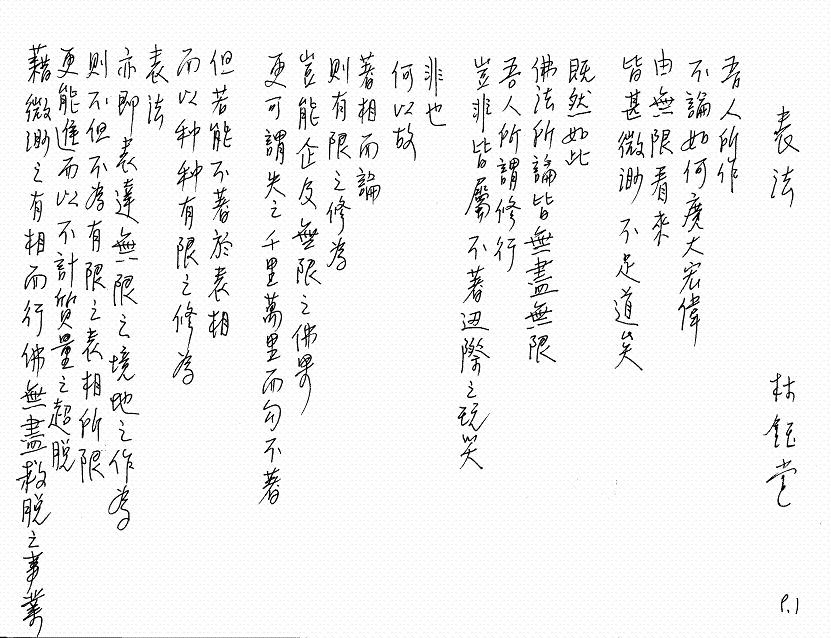 表法 林鈺堂
吾人所作
不論如何廣大宏偉
由無限看來
皆甚微渺不足道矣
既然如此
佛法所論皆無盡無限
吾人所謂修行
豈非皆屬不著边際之玩笑
非也
何以故
著相而論
則有限之修為
豈能企及無限之佛果
更可謂失之千里萬里而勾不著
但若能不著於表相
而以种种有限之修為
表法
亦即表達無限之境地之作為
則不但不為有限之表相所限
更能進而以不計質量之超脫
藉微渺之有相而行佛無盡救脫之事業
P.1